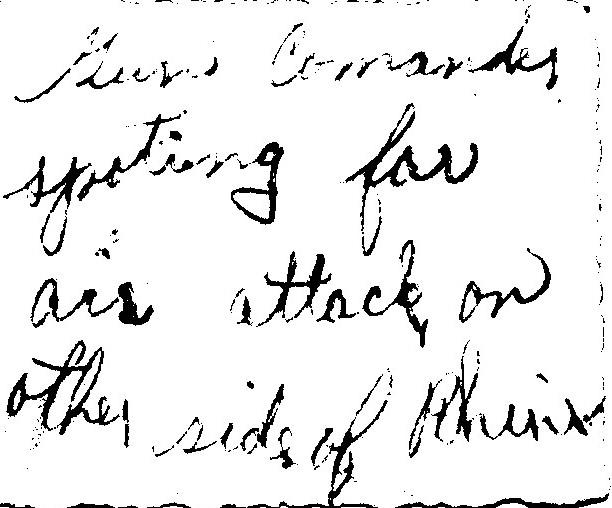 Guns Comander
spoting for
air attack on
other side of Rhine